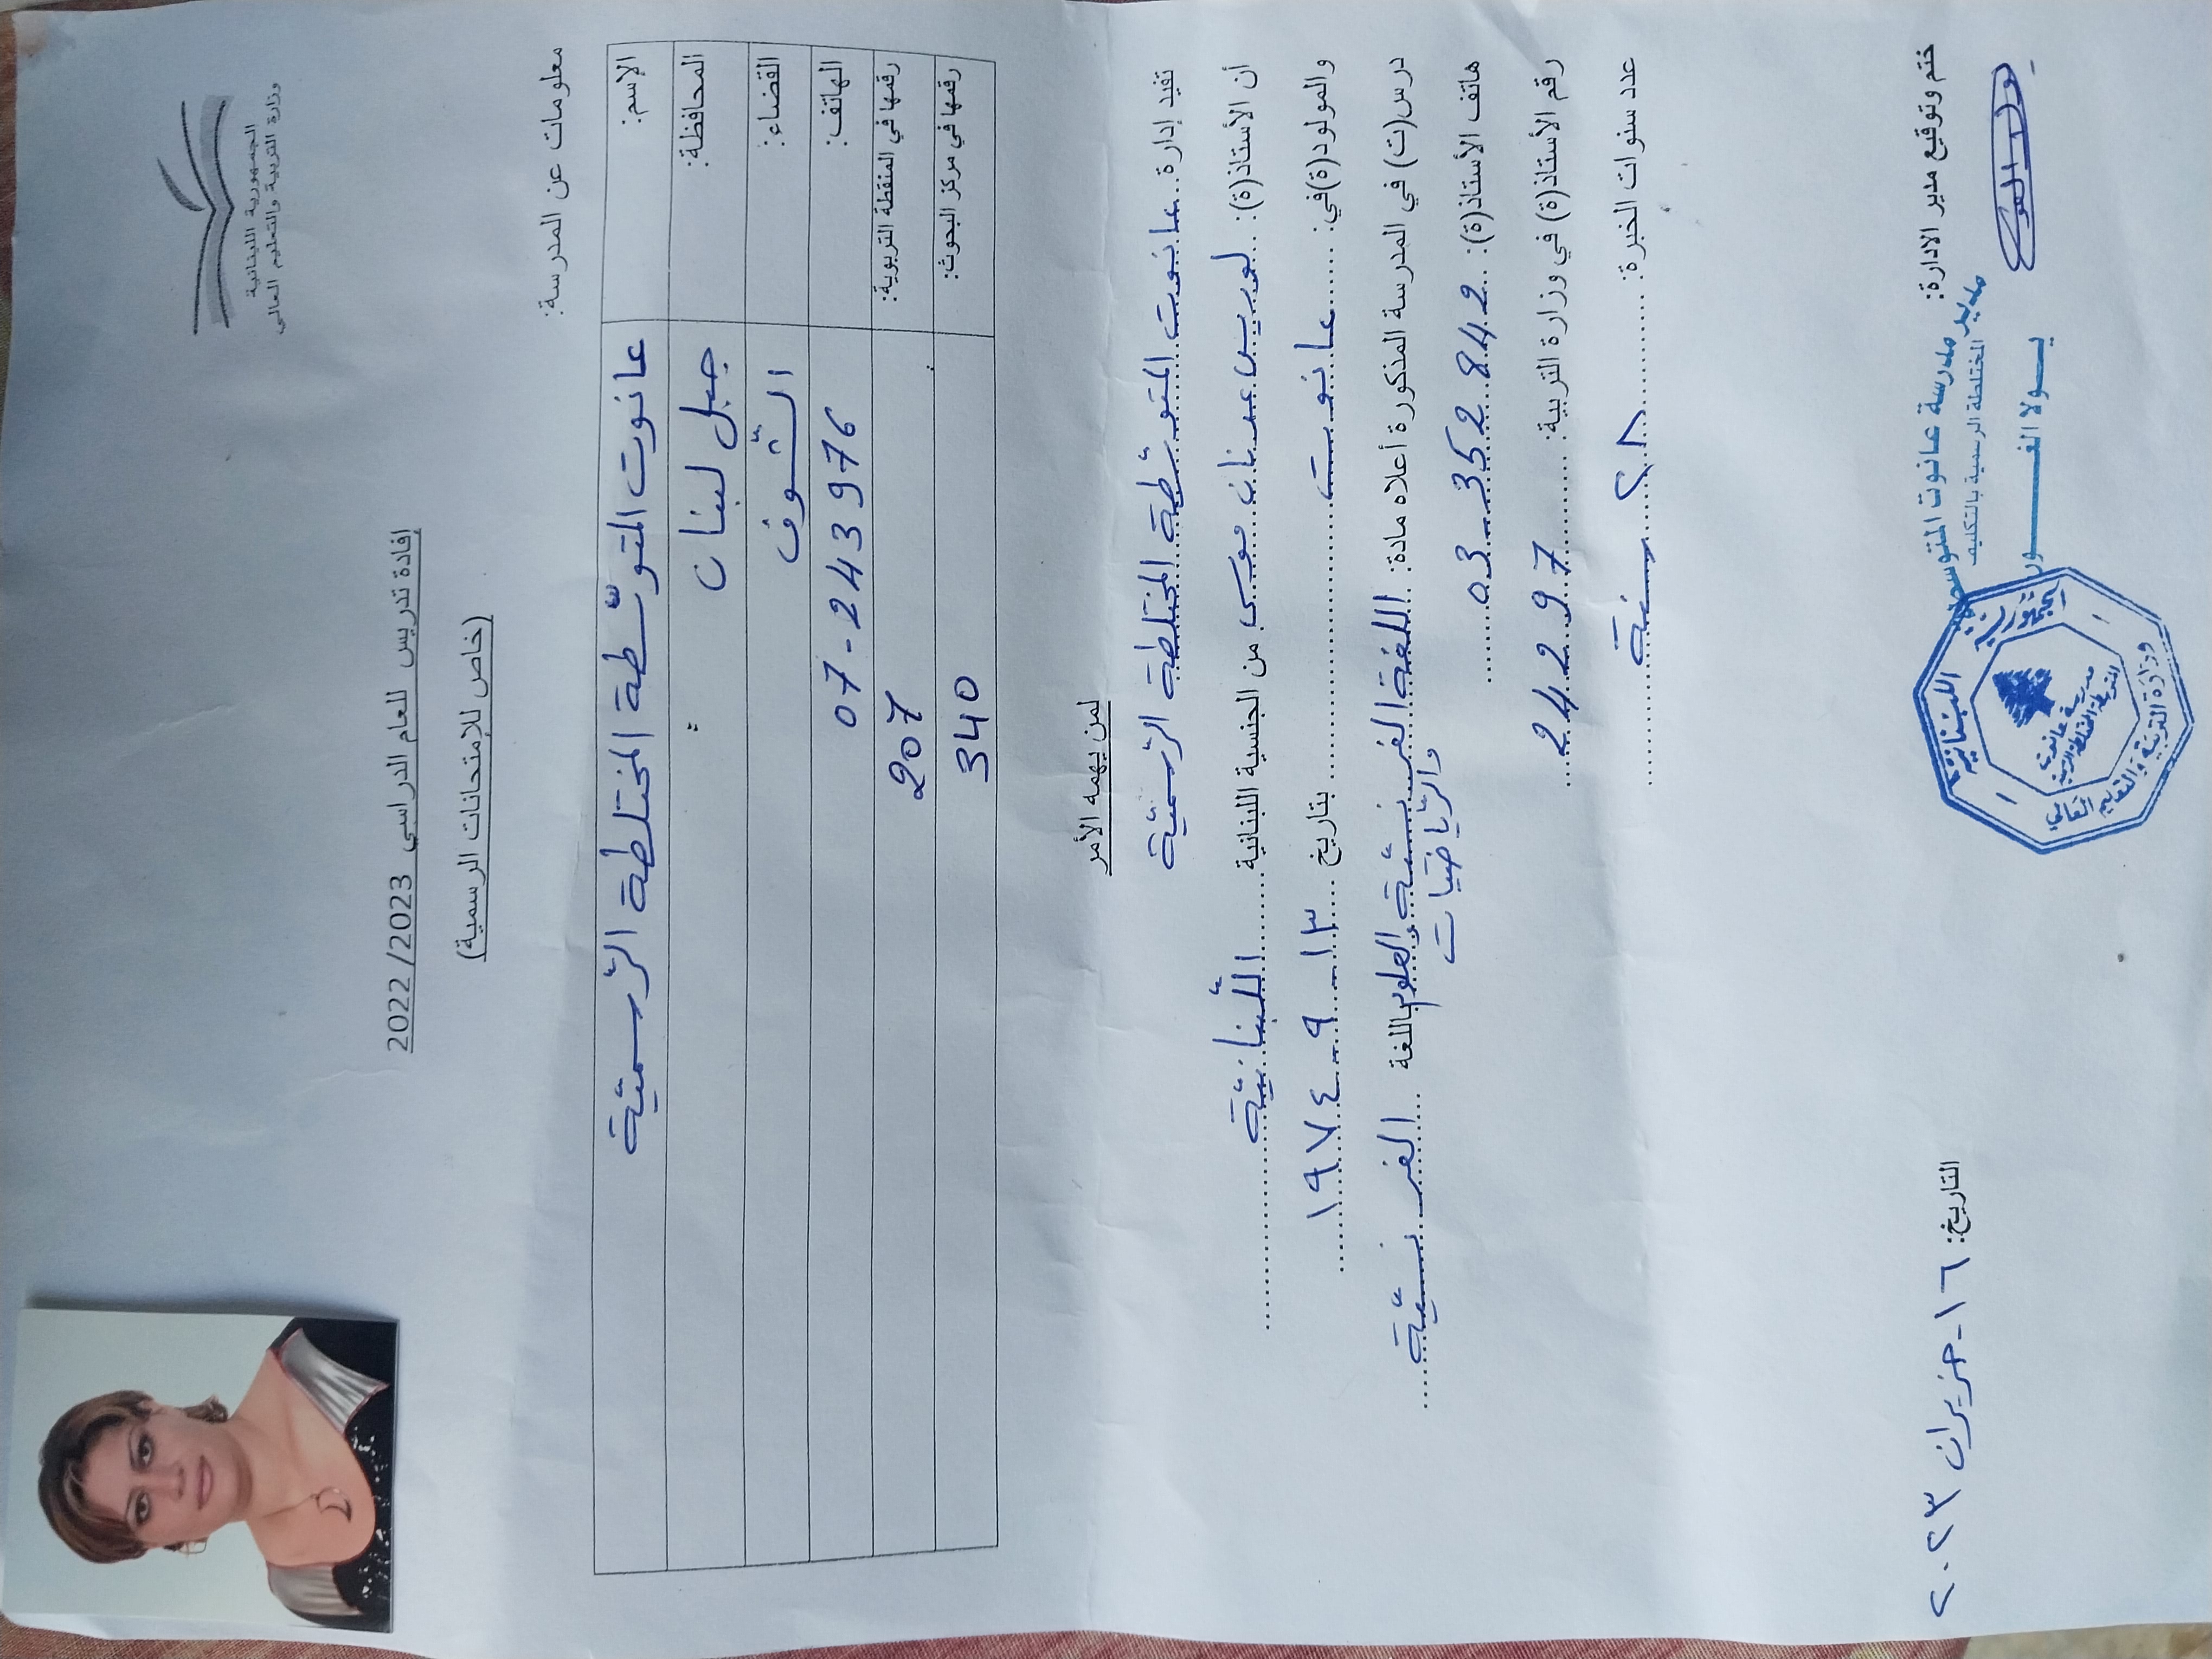 الجمهورية اللبنانية
وزارة التربية والتعليم العالي
افادة تدريس للعام الدراسي 2022/2023
(خاص للإمتحانات الرسمية)
معلومات عن المدرسة:
الإسم: عانوت المتوسّطة المختلطة الرّسميّة
المحافظة: جبل لبنان
القضاء: الشّوف
الهاتف: 07-243976
رقمها في المنقطة التربوية: 207
رقمها في مركز البحوث: 340
لمن يهمه الأمر
تفيد إدارة عانوت المتوسّطة المختلطة الرّسميّة
أن الأستاذ(ة): لوريس عدنان موسى من الجنسية اللبنانية اللّبنانيّة
والمولود(ة)في: عانوت بتاريخ ١٣-٩-١٩٧٤
درس(ت) في المدرسة المذكورة أعلاه مادة: اللغة الفرنسيّة والعلوم باللغة الفرنسيّة
والرّياضيّات
هاتف الأستاذ(ة): 03-352842
رقم الأستاذ(ة) في وزارة التربية: 24297
عدد سنوات الخبرة: ٢٨ سنة
ختم وتوقيع مدير الادارة:
التاريخ: ١٦-حزيران ٢٠٢٣
مدير مدرسة عانوت المتوسطة
المختلطة الرسمية بالتكليف
بولا الغور
الجمهورية اللبنانية
وزارة التربية والتعليم العالي